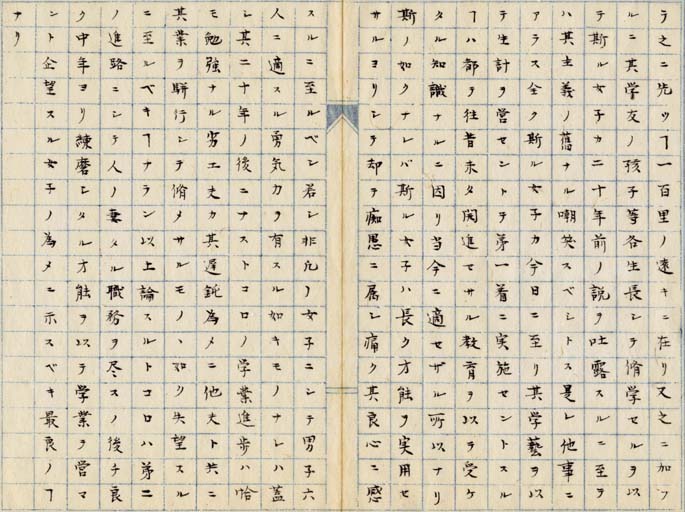 ラ之ニ先ツヿ一百里ノ遠キニ在リ又之ニ加フ
ルニ其学友ノ孩子等各生長シテ脩学セルヲ以
テ斯ル女子カ二十年前ノ説ヲ吐露スルニ至ヲ
ハ其主義ノ舊ナル嘲笑スベシトス是レ他事ニ
アラス全ク斯ル女子カ今日ニ至リ其学藝ヲ以
テ生計ヲ営セントヲ第一着ニ実施セントスル
ヿハ都テ往昔未タ開進セサル教育ヲ以テ受ケ
タル知識ナルニ因リ当今ニ適セザル所以ナリ
斯ノ如クナレバ斯ル女子ハ長ク才能ヲ実用セ
サルヨリシテ却テ痴愚ニ属シ痛ク其良心ニ感
スルニ至ルベシ若シ非凡ノ女子ニシテ男子六
人ニ適スル勇気カヲ有スル如キモノナレハ蓋
シ其二十年ノ後ニナストコロノ学業進歩ハ恰
モ勉強ナル劣工丈カ其遅鈍為メニ他丈ト共ニ
其業ヲ駢行シテ脩メサルモノヽ如ク失望スル
ニ至ルベキヿナラン以上論スルトコロハ第二
ノ進路ニシテ人ノ妻タル職務ヲ尽スノ後チ良
ク中年ヨリ練磨シタル才能ヲ以テ学業ヲ営マ
ント企望スル女子ノ為メニ示スベキ最良ノヿ
ナリ